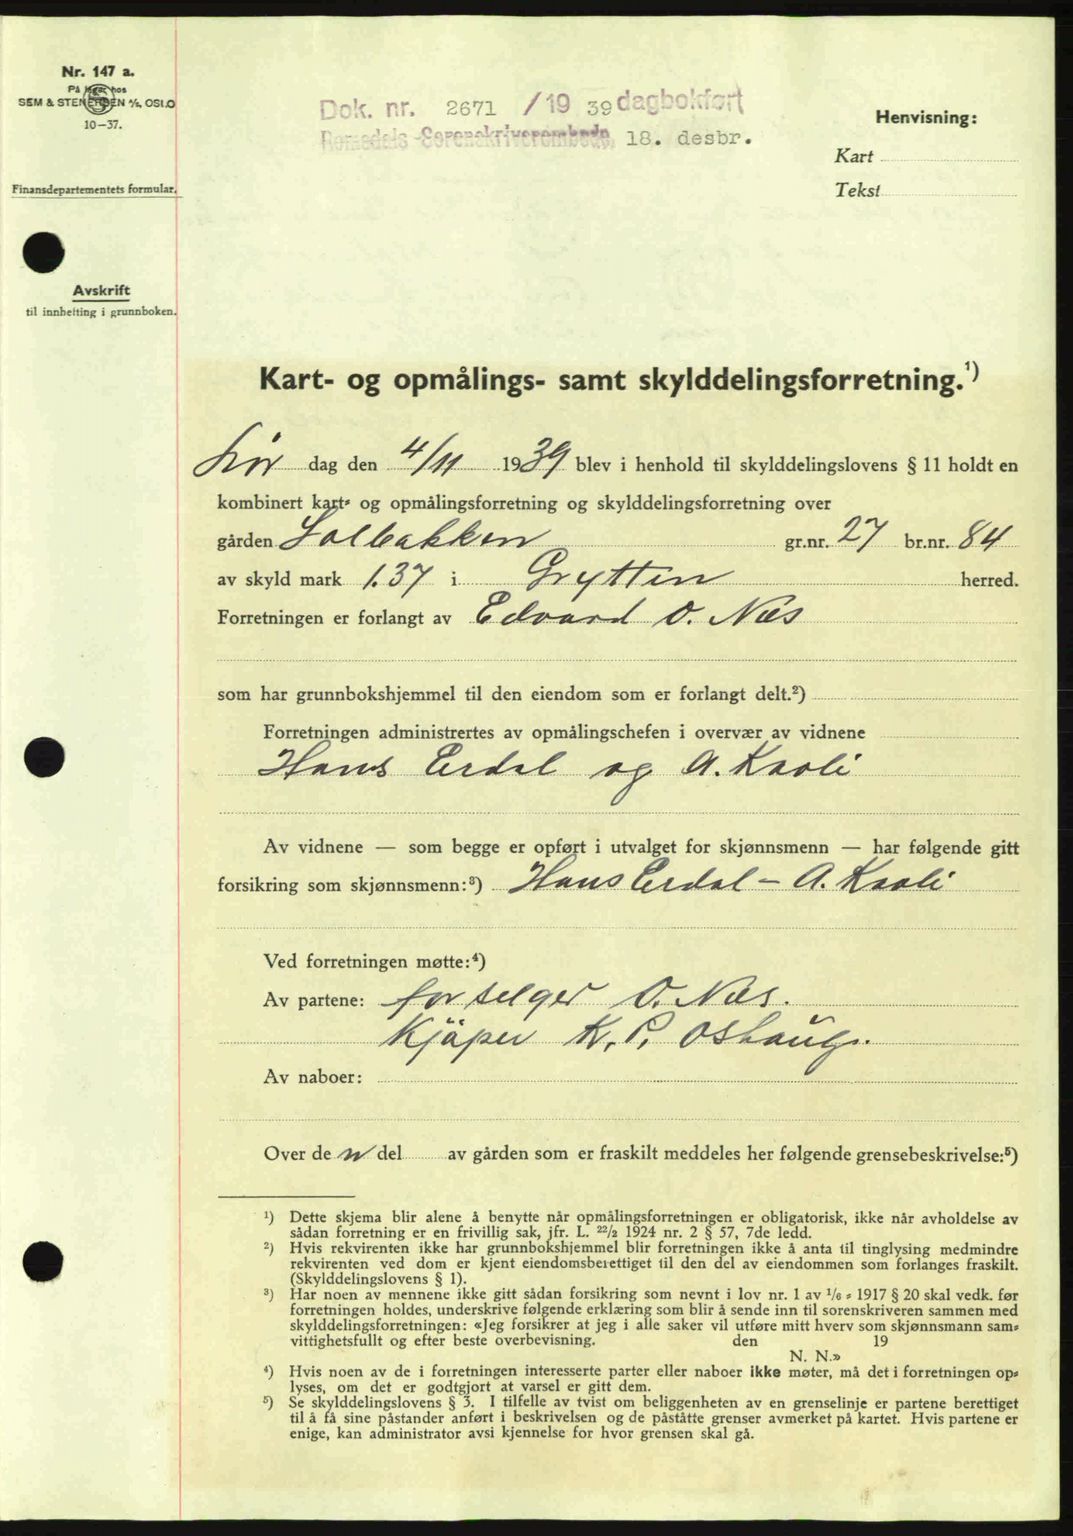 Nr. 147 a.
På lager hos
SEM & STENERSEN A/S, OSLO
10-37.
Finansdepartementets formular.
Avskrift
til innhefting i grunnboken.
Dok. nr. 2671 / 19 39 dagbokført
Romsdals Sorenskriverembede, 18. desbr.
Henvisning:
Kart
Tekst
Kart- og opmålings- samt skylddelingsforretning.¹)
Lør dag den 4/11 1939 blev i henhold til skylddelingslovens § 11 holdt en
kombinert kart- og opmålingsforretning og skylddelingsforretning over
gården Solbakken gr.nr. 27 br.nr. 84
av skyld mark 1.37 i Grytten herred.
Forretningen er forlangt av Edvard O. Næs
som har grunnbokshjemmel til den eiendom som er forlangt delt.²)
Forretningen administrertes av opmålingschefen i overvær av vidnene
Hans Erdal og A. Kavli
Av vidnene — som begge er opført i utvalget for skjønnsmenn — har følgende gitt
forsikring som skjønnsmenn:³) Hans Erdal - A. Kavli
Ved forretningen møtte:⁴)
Av partene: for selger O. Næs.
Kjøper K. P. Oshaug.
Av naboer:
Over de n del av gården som er fraskilt meddeles her følgende grensebeskrivelse:⁵)
¹) Dette skjema blir alene å benytte når opmålingsforretningen er obligatorisk, ikke når avholdelse av
sådan forretning er en frivillig sak, jfr. L. 22/2 1924 nr. 2 § 57, 7de ledd.
²) Hvis rekvirenten ikke har grunnbokshjemmel blir forretningen ikke å anta til tinglysing medmindre
rekvirenten ved dom er kjent eiendomsberettiget til den del av eiendommen som forlanges fraskilt.
(Skylddelingslovens § 1).
³) Har noen av mennene ikke gitt sådan forsikring som nevnt i lov nr. 1 av 1/6 - 1917 § 20 skal vedk. før
forretningen holdes, underskrive følgende erklæring som blir å sende inn til sorenskriveren sammen med
skylddelingsforretningen: «Jeg forsikrer at jeg i alle saker vil utføre mitt hverv som skjønnsmann sam-
vittighetsfullt og efter beste overbevisning. den 19
N. N.»
⁴) Hvis noen av de i forretningen interesserte parter eller naboer ikke møter, må det i forretningen op-
lyses, om det er godtgjort at varsel er gitt dem.
⁵) Se skylddelingslovens § 3. I tilfelle av tvist om beliggenheten av en grenselinje er partene berettiget
til å få sine påstander anført i beskrivelsen og de påståtte grenser avmerket på kartet. Hvis partene er
enige, kan administrator avsi kjennelse for hvor grensen skal gå.